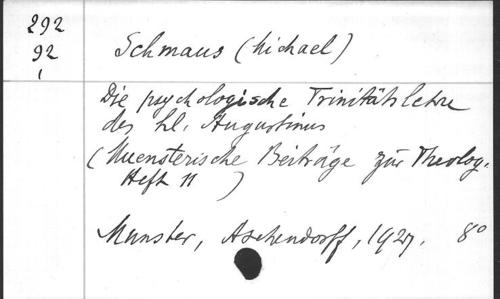 292
92
1
Schmaus (Michael)
Die psychologische Trinitätslehre
des hl. Augustinus
(Muensterische Beiträge zur Theolog.
Heft 11 )
Munster, Aschendorff, 1927. 8°